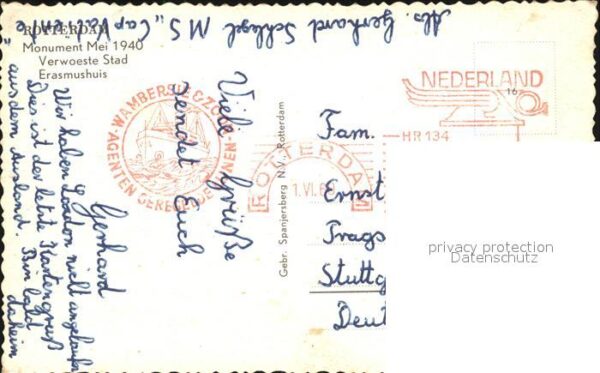 ROTTERDAM
Monument Mei 1940
Verwoeste Stad
Erasmushuis
Abs. Gerhard Schlegel MS „Cap
Viele Grüße
sendet Euch
Gerhard
Wir haben London nicht angelaufen
Dies ist der letzte Kartengruß
aus dem Ausland. Bin bald
daheim
Gebr. Spanjersberg N.V., Rotterdam
WAMBERSIE
AGENTEN
NEDERLAND
16
HR 134
ROTTERDAM
1.VI.6
Fam.
Ernst
Prags
Stuttg
Deut
privacy protection
Datenschutz